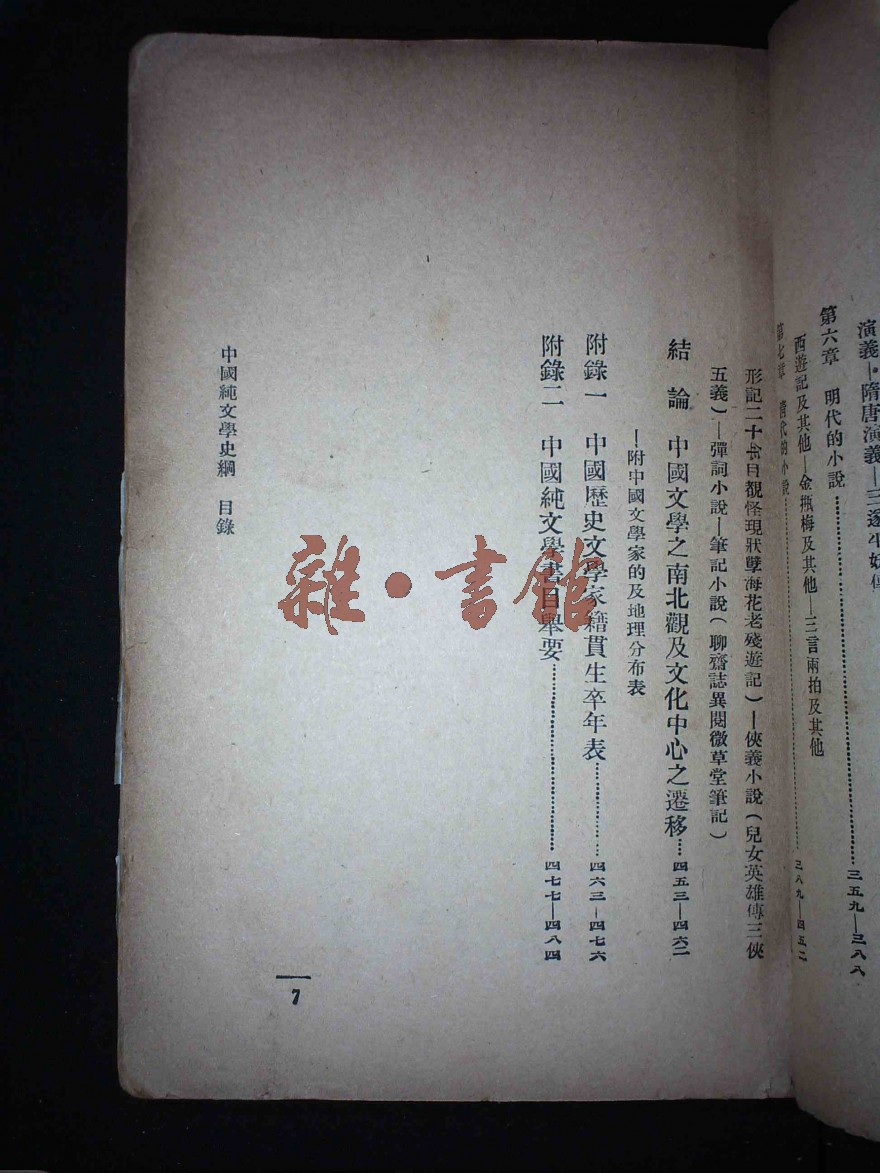 演義・隋唐演義—三遂平妖傳
第六章 明代的小說……三五九—三八八
西遊記及其他—金瓶梅及其他—三言兩拍及其他
第七章 清代的小說……三八九—四五二
形記二十年目覩怪現狀孽海花老殘遊記）—俠義小說（兒女英雄傳三俠
五義）—彈詞小說—筆記小說（聊齋誌異閱微草堂筆記）
結論 中國文學之南北觀及文化中心之遷移…四五三—四六二
—附中國文學家的及地理分布表
附錄一 中國歷史文學家籍貫生卒年表……四六三—四七六
附錄二 中國純文學書目舉要……四七七—四八四
中國純文學史綱 目錄
7
雜・書館